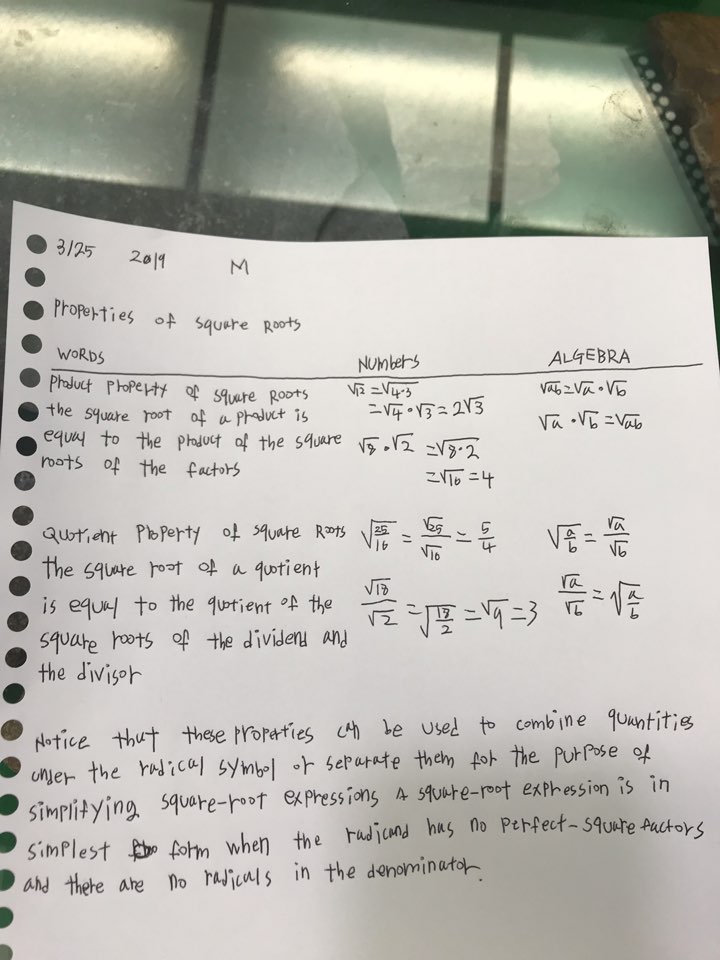 3/25 2019 M
Properties of Square Roots
WORDS Numbers ALGEBRA
Product Property of Square Roots
the square root of a product is
equal to the product of the square
roots of the factors
√12 = √4·3
= √4 · √3 = 2√3
√8 · √2 = √8·2
= √16 = 4
√ab = √a · √b
√a · √b = √ab
Quotient Property of Square Roots
the square root of a quotient
is equal to the quotient of the
square roots of the dividend and
the divisor
√25/16 = √25/√16 = 5/4
√18/√2 = √18/2 = √9 = 3
√a/b = √a/√b
√a/√b = √a/b
Notice that these properties can be used to combine quantities
under the radical symbol or separate them for the purpose of
simplifying square-root expressions A square-root expression is in
simplest form when the radicand has no perfect-square factors
and there are no radicals in the denominator.